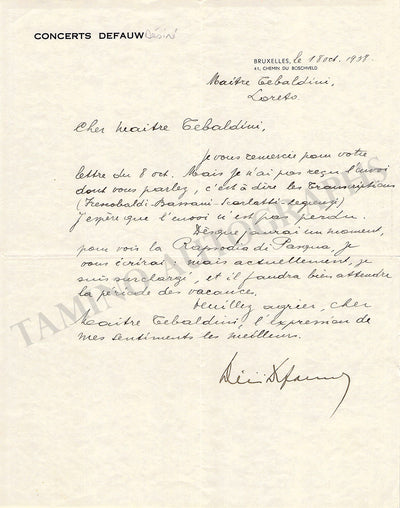 CONCERTS DEFAUW Désiré
BRUXELLES, le 18 oct. 1938.
41, CHEMIN DU BOSCHVELD
Maître Tebaldini,
Loreto.
Cher Maitre Tebaldini,
je vous remercie pour votre
lettre du 8 oct. Mais je n'ai pas reçu l'envoi
dont vous parlez, c'est à dire les Transcriptions
(Frescobaldi-Bassani-Scarlatti-
J'espère que l'envoi n'est pas perdu.
Dès que j'aurai un moment,
pour voir la Rapsodia di Pasqua, je
vous écrirai, mais actuellement, je
suis surchargé, et il faudra bien attendre
la période des vacances.
Veuillez agréer, cher
Maitre Tebaldini, l'expression de
mes sentiments les meilleurs.
Désiré Defauw
TAMINO AUTOGRAPHS